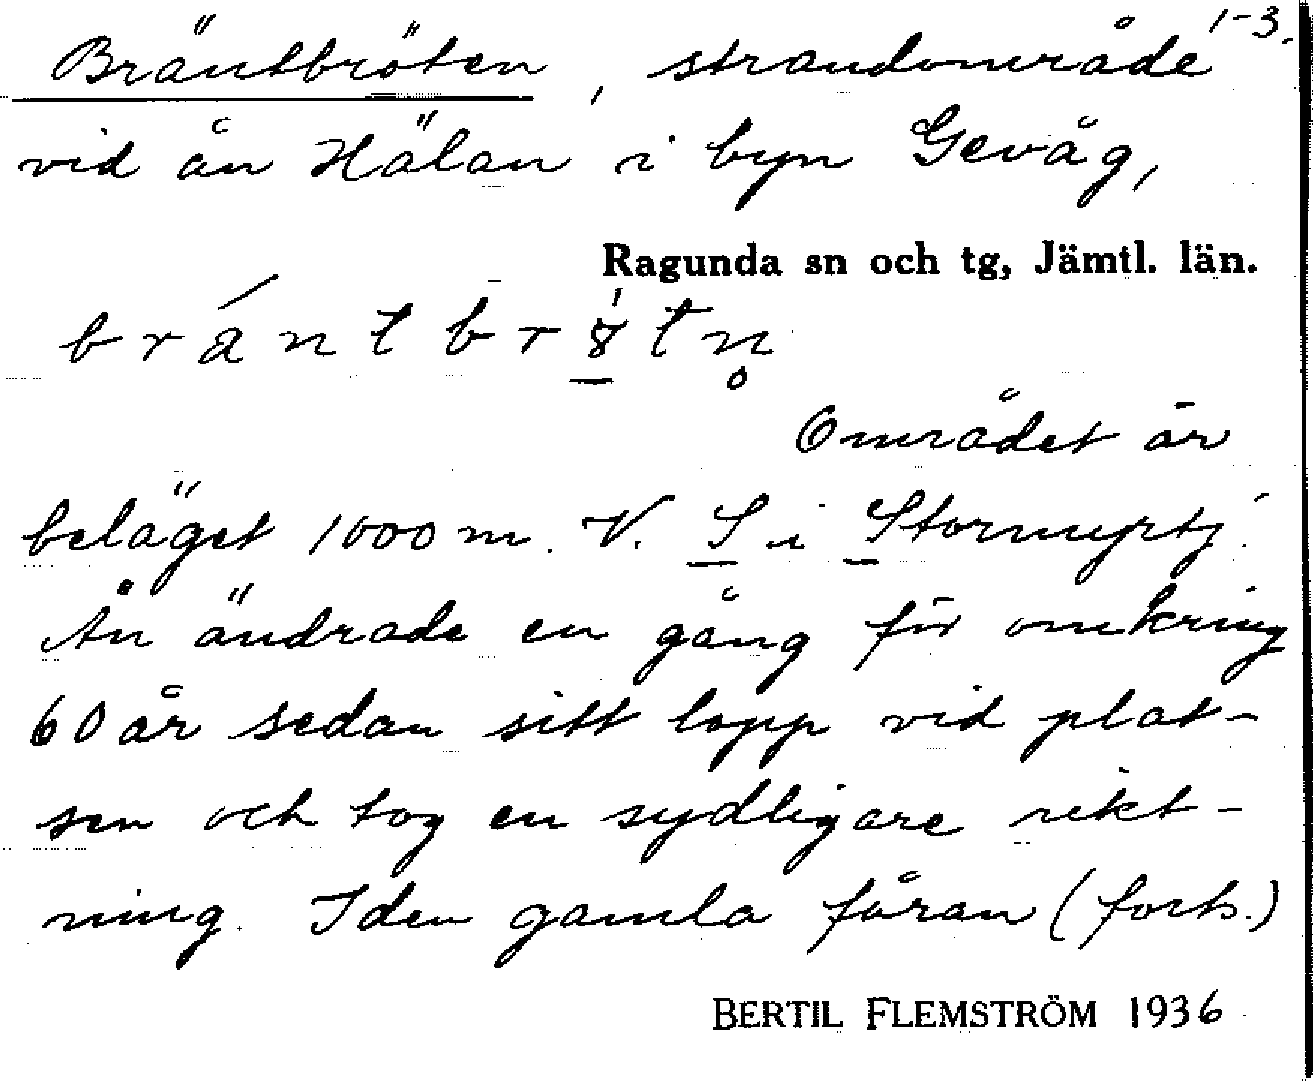 1-3.
Bräntbröten, strandområde
vid ån Hälan i byn Gevåg,
Ragunda sn och tg, Jämtl. län.
Området är
beläget 1000 m. V. S i Stormyrtj.
Ån ändrade en gång för omkring
60 år sedan sitt lopp vid plat-
sen och tog en sydligare rikt-
ning. I den gamla fåran (forts.)
BERTIL FLEMSTRÖM 1936